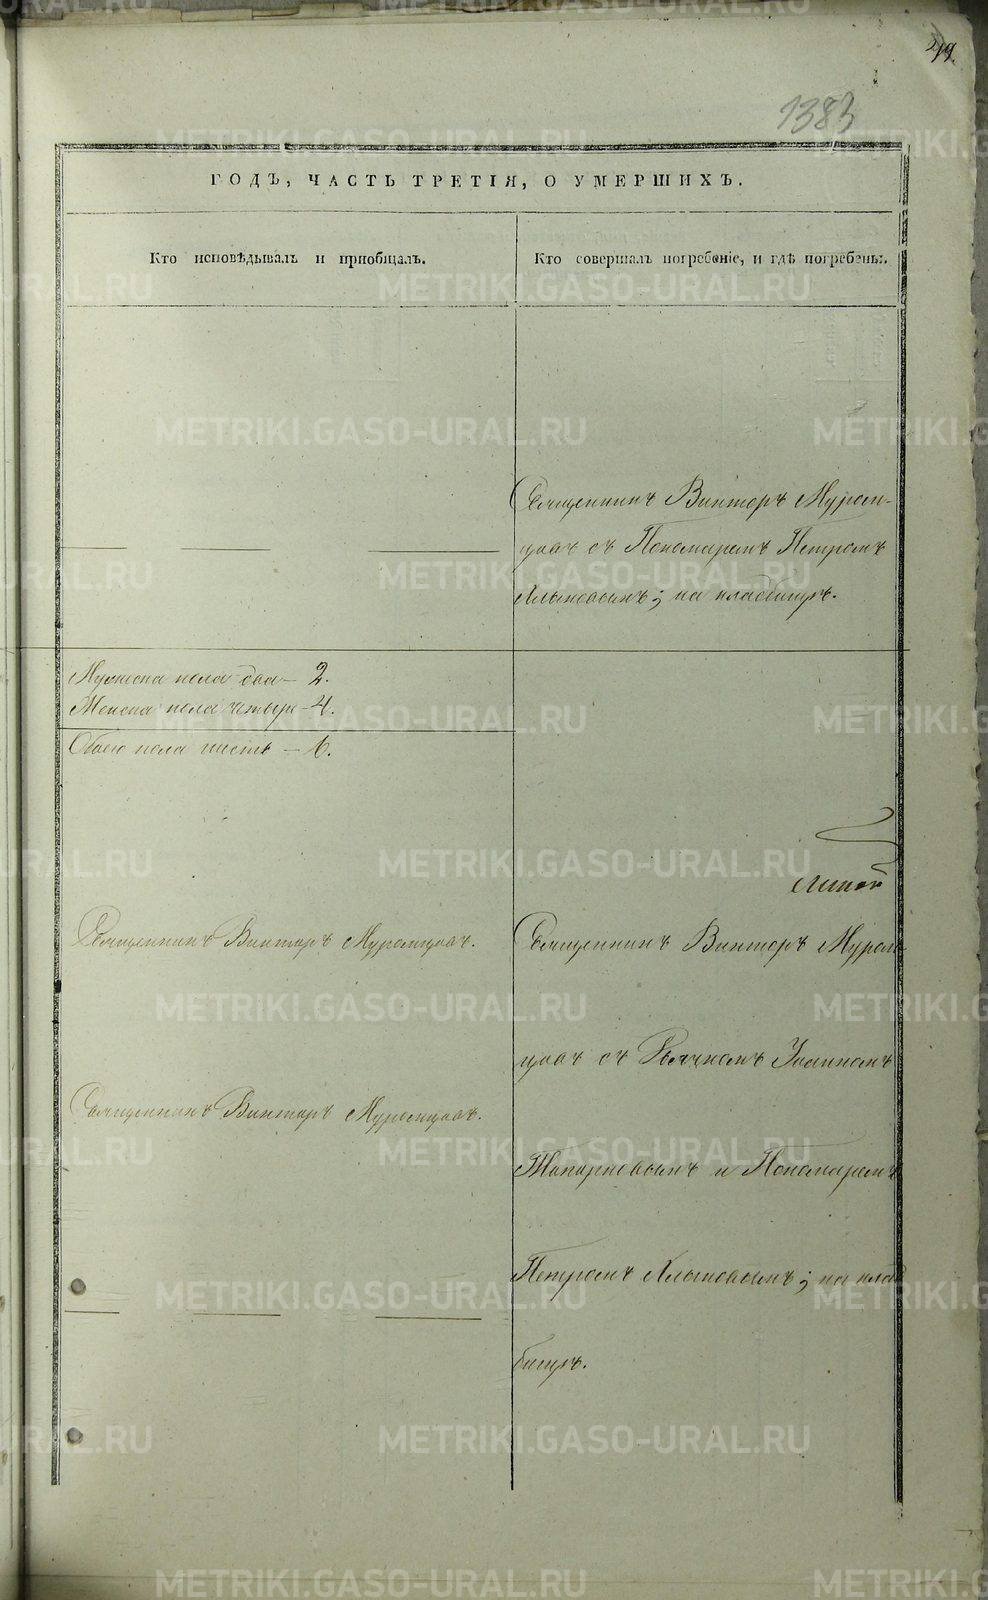 49.
1383
ГОДЪ, ЧАСТЬ ТРЕТІЯ, О УМЕРШИХЪ.
Кто исповѣдывалъ и пріобщалъ.
Кто совершалъ погребеніе, и гдѣ погребены.
Священникъ Викторъ Муром-
цовъ съ Пономаремъ Петромъ
Хлыновымъ; на кладбищѣ.
Мужеска пола два – 2.
Женска пола четыре – 4.
Обоего пола шесть – 6.
Священникъ Викторъ Муромцовъ.
Священникъ Викторъ Муромцовъ.
Священникъ Викторъ Муром-
цовъ съ Дьячкомъ Іоанномъ
Топорковымъ и Пономаремъ
Петромъ Хлыновымъ; на клад-
бищѣ.
METRIKI.GASO-URAL.RU